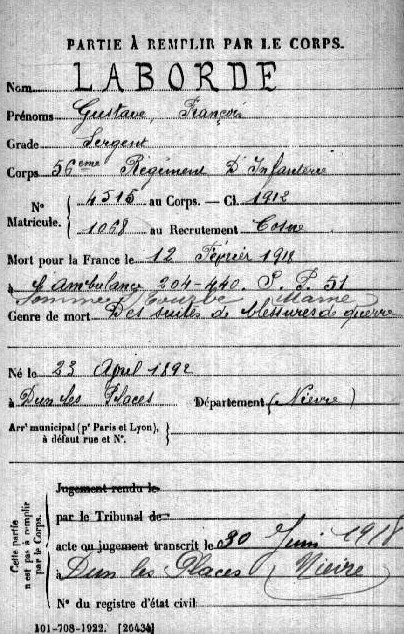 PARTIE À REMPLIR PAR LE CORPS.
Nom LABORDE
Prénoms Gustave, François
Grade Sergent
Corps 56eme Régiment D'Infanterie
N° Matricule. { 4515 au Corps. — Cl. 1912
1068 au Recrutement Cosne
Mort pour la France le 12 Février 1918
à l'Ambulance 204-440. S. P. 51
Somme Tourbe (Marne)
Genre de mort Des suites de blessures de guerre
Né le 23 April 1892
à Dun les Places Département (Nièvre)
Arrt municipal (pr Paris et Lyon), à défaut rue et N°. }
Cette partie n'est pas à remplir par le Corps.
Jugement rendu le
par le Tribunal de
acte ou jugement transcrit le 30 Juin 1918
à Dun les Places (Nièvre)
N° du registre d'état civil
101-708-1922. [26434]